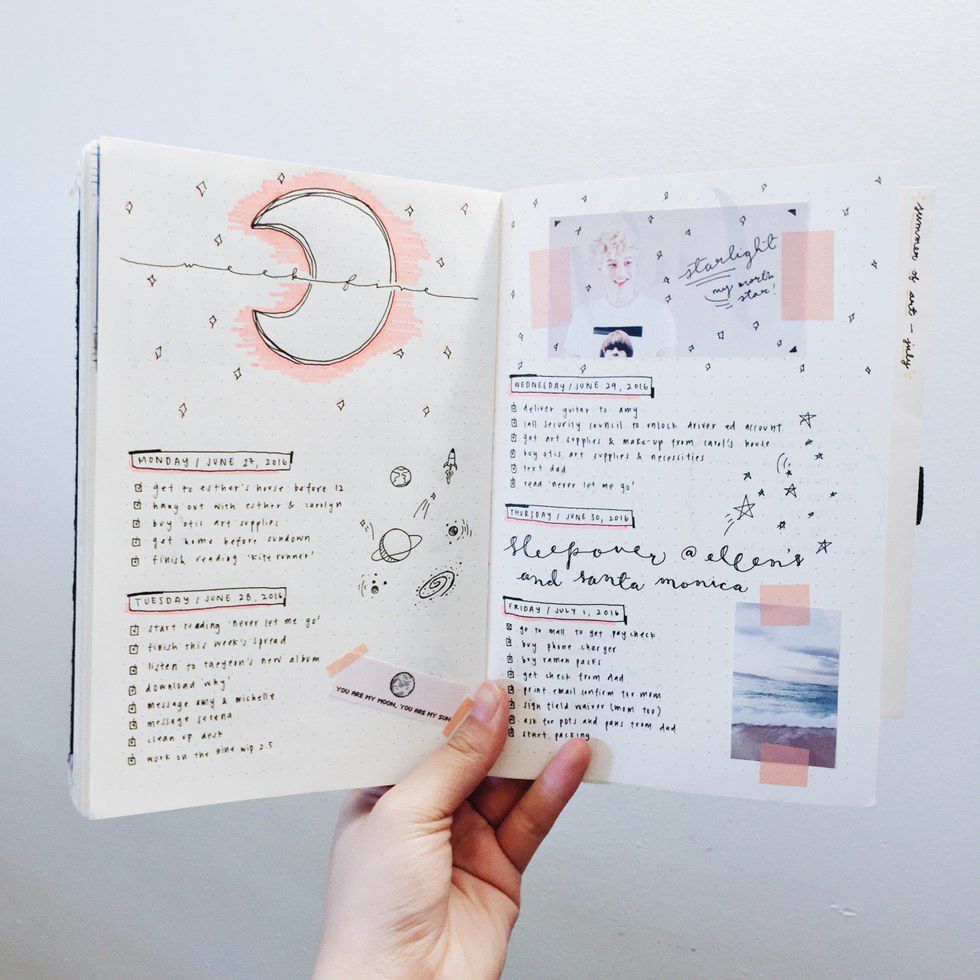 week five
MONDAY / JUNE 27, 2016
get to esther's house before 12
hang out with esther & carolyn
buy otis art supplies
get home before sundown
finish reading 'kite runner'
TUESDAY / JUNE 28, 2016
start reading 'never let me go'
finish this week's spread
listen to taeyeon's new album
download 'why'
message amy & michelle
message serena
clean up desk
work on the wip 2.5
YOU ARE MY MOON, YOU ARE MY SUN
starlight
my north
star!
WEDNESDAY / JUNE 29, 2016
deliver guitar to amy
call security council to unlock driver ed account
get art supplies & make-up from carol's house
buy otis art supplies & necessities
text dad
read 'never let me go'
THURSDAY / JUNE 30, 2016
sleepover @ ellen's
and santa monica
FRIDAY / JULY 1, 2016
go to mall to get paycheck
buy phone charger
buy ramen packs
get check from dad
print email confirm for mom
sign field waiver (mom too)
ask for pots and pans from dad
start packing
summer of art - july